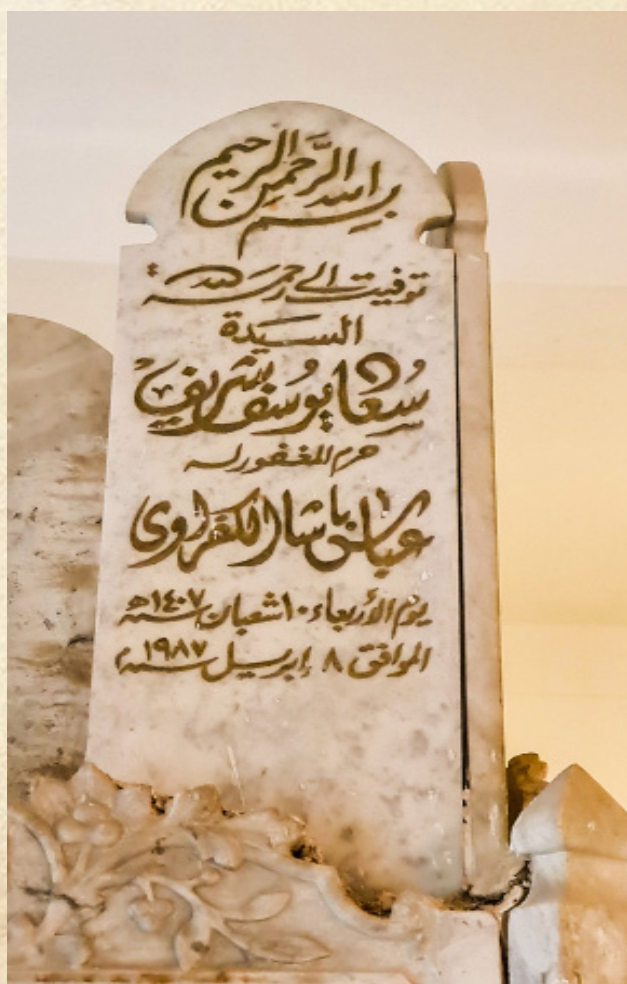 بسم الله الرحمن الرحيم
توفيت إلى رحمة الله
السيدة
سعاد يوسف شريف
حرم المغفور له
عباس باشا الكفراوى
يوم الأربعاء ١٠ شعبان سنة ١٤٠٧ هـ
الموافق ٨ إبريل سنة ١٩٨٧